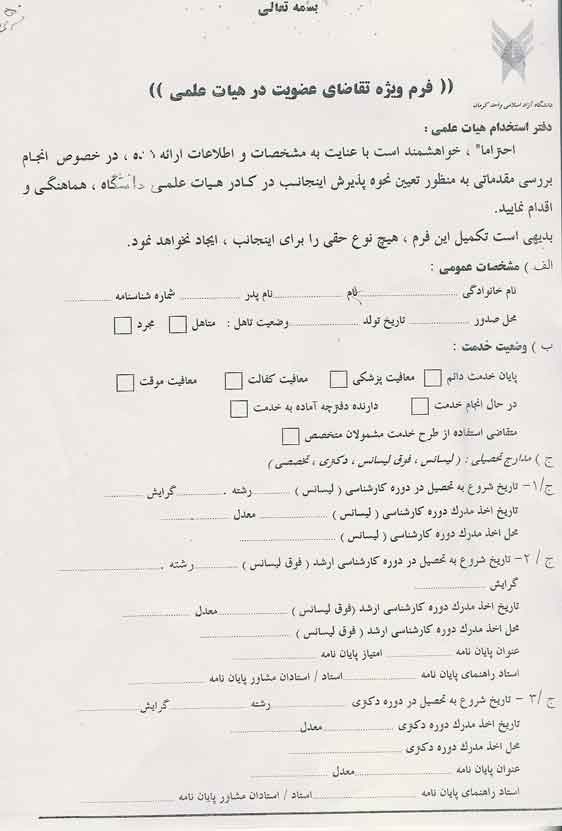 بسمه تعالی
دانشگاه آزاد اسلامی واحد کرمان
(( فرم ویژه تقاضای عضویت در هیات علمی ))
دفتر استخدام هیات علمی :
احتراما" ، خواهشمند است با عنایت به مشخصات و اطلاعات ارائه ، در خصوص انجام
بررسی مقدماتی به منظور تعیین نحوه پذیرش اینجانب در کادر هیات علمی دانشگاه ، هماهنگی و
اقدام نمایید.
بدیهی است تکمیل این فرم ، هیچ نوع حقی را برای اینجانب ، ایجاد نخواهد نمود.
الف ) مشخصات عمومی :
نام خانوادگی ............ نام ............ نام پدر ............ شماره شناسنامه ............
محل صدور ............ تاریخ تولد ............ وضعیت تاهل : متاهل □ مجرد □
ب ) وضعیت خدمت :
پایان خدمت دائم □ معافیت پزشکی □ معافیت کفالت □ معافیت موقت □
در حال انجام خدمت □ دارنده دفترچه آماده به خدمت □
متقاضی استفاده از طرح خدمت مشمولان متخصص □
ج ) مدارج تحصیلی : ( لیسانس ، فوق لیسانس ، دکتری ، تخصصی )
ج/۱- تاریخ شروع به تحصیل در دوره کارشناسی ( لیسانس ) ............ رشته ............ گرایش ............
تاریخ اخذ مدرک دوره کارشناسی ( لیسانس ) ............ معدل ............
محل اخذ مدرک دوره کارشناسی ( لیسانس ) ............
ج / ۲- تاریخ شروع به تحصیل در دوره کارشناسی ارشد ( فوق لیسانس ) ............ رشته ............
گرایش ............
تاریخ اخذ مدرک دوره کارشناسی ارشد (فوق لیسانس ) ............ معدل ............
محل اخذ مدرک دوره کارشناسی ارشد ( فوق لیسانس ) ............
عنوان پایان نامه ............ امتیاز پایان نامه ............
استاد راهنمای پایان نامه ............ استاد / استادان مشاور پایان نامه ............
ج /۳ - تاریخ شروع به تحصیل در دوره دکتری ............ رشته ............ گرایش ............
تاریخ اخذ مدرک دوره دکتری ............ معدل ............
محل اخذ مدرک دوره دکتری ............
عنوان پایان نامه ............ معدل ............
استاد راهنمای پایان نامه ............ استاد / استادان مشاور پایان نامه ............